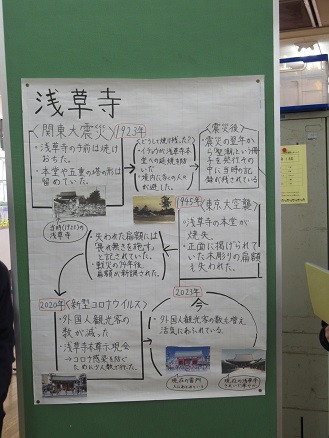 浅草寺
〈関東大震災〉1923年
・浅草寺の寺前は焼け
おちた。
・本堂や五重の塔の形は
留めていた。
〈どうして焼け残った?〉
・イチョウが浅草寺本
堂への延焼を防いだ
・境内に多くの人々
が避難した。
〈震災後〉
・震災の翌年か
ら聖潮という冊
子を発行。その
中に当時の記
録が残されている
当時(1923)の
浅草寺
1945年〈東京大空襲〉
・浅草寺の本堂が
焼失。
・正面に掲げられて
いた木彫りの扁額
も失われた。
失われた扁額には
"畏れ無きを施す"
と記されていた。
・戦災の79年後
扁額が新調された。
2020年〈新型コロナウイルス〉
・外国人観光客の
数が減った
・浅草寺本尊示現会
→コロナ感染を防ぐ
ために少人数で行った。
2023年
今
・外国人観光客の数も増え
活気にあふれている。
現在の雷門
現在の浅草寺